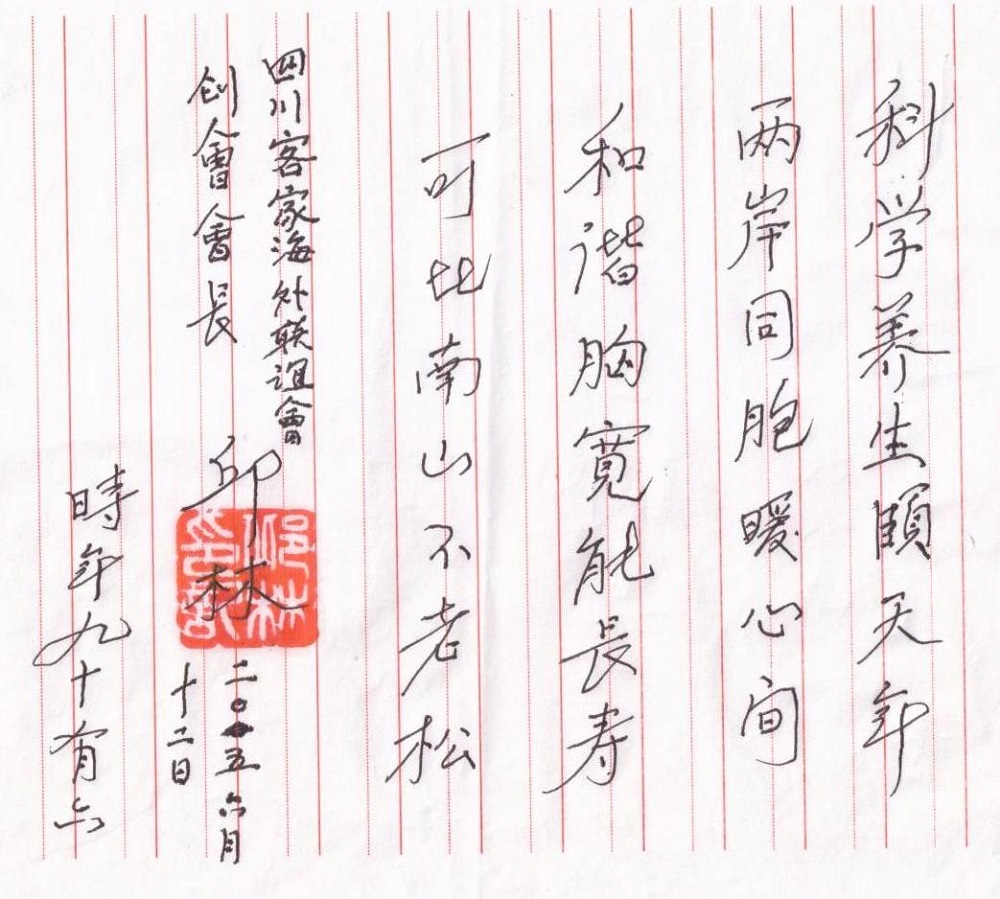 科学养生頤天年
两岸同胞暖心间
和谐胸宽能長寿
可比南山不老松
四川客家海外联谊會
创會會長
邱林
二〇十五 六月
十二日
時年九十有六